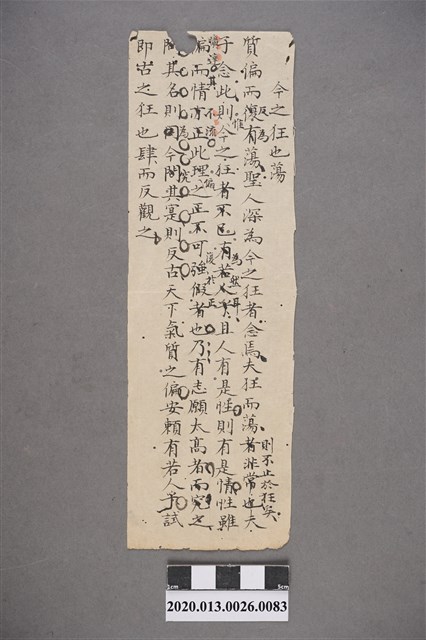 今之狂也蕩
質偏而復有蕩聖人深為今之狂者念焉夫狂而蕩者非常也夫
反為
則不止於狂矣
子念此則今之狂者不已有若人乎且人有是性則有是情性雖
惟
為然耳
偏而情亦正此理之正不可強假者也乃有志願太高者而究之
不流
偏
復於正
聞其名則同今問其寔則反古天下氣質之偏安賴有若人予試
為
即古之狂也肆而反觀之
2020.013.0026.0083